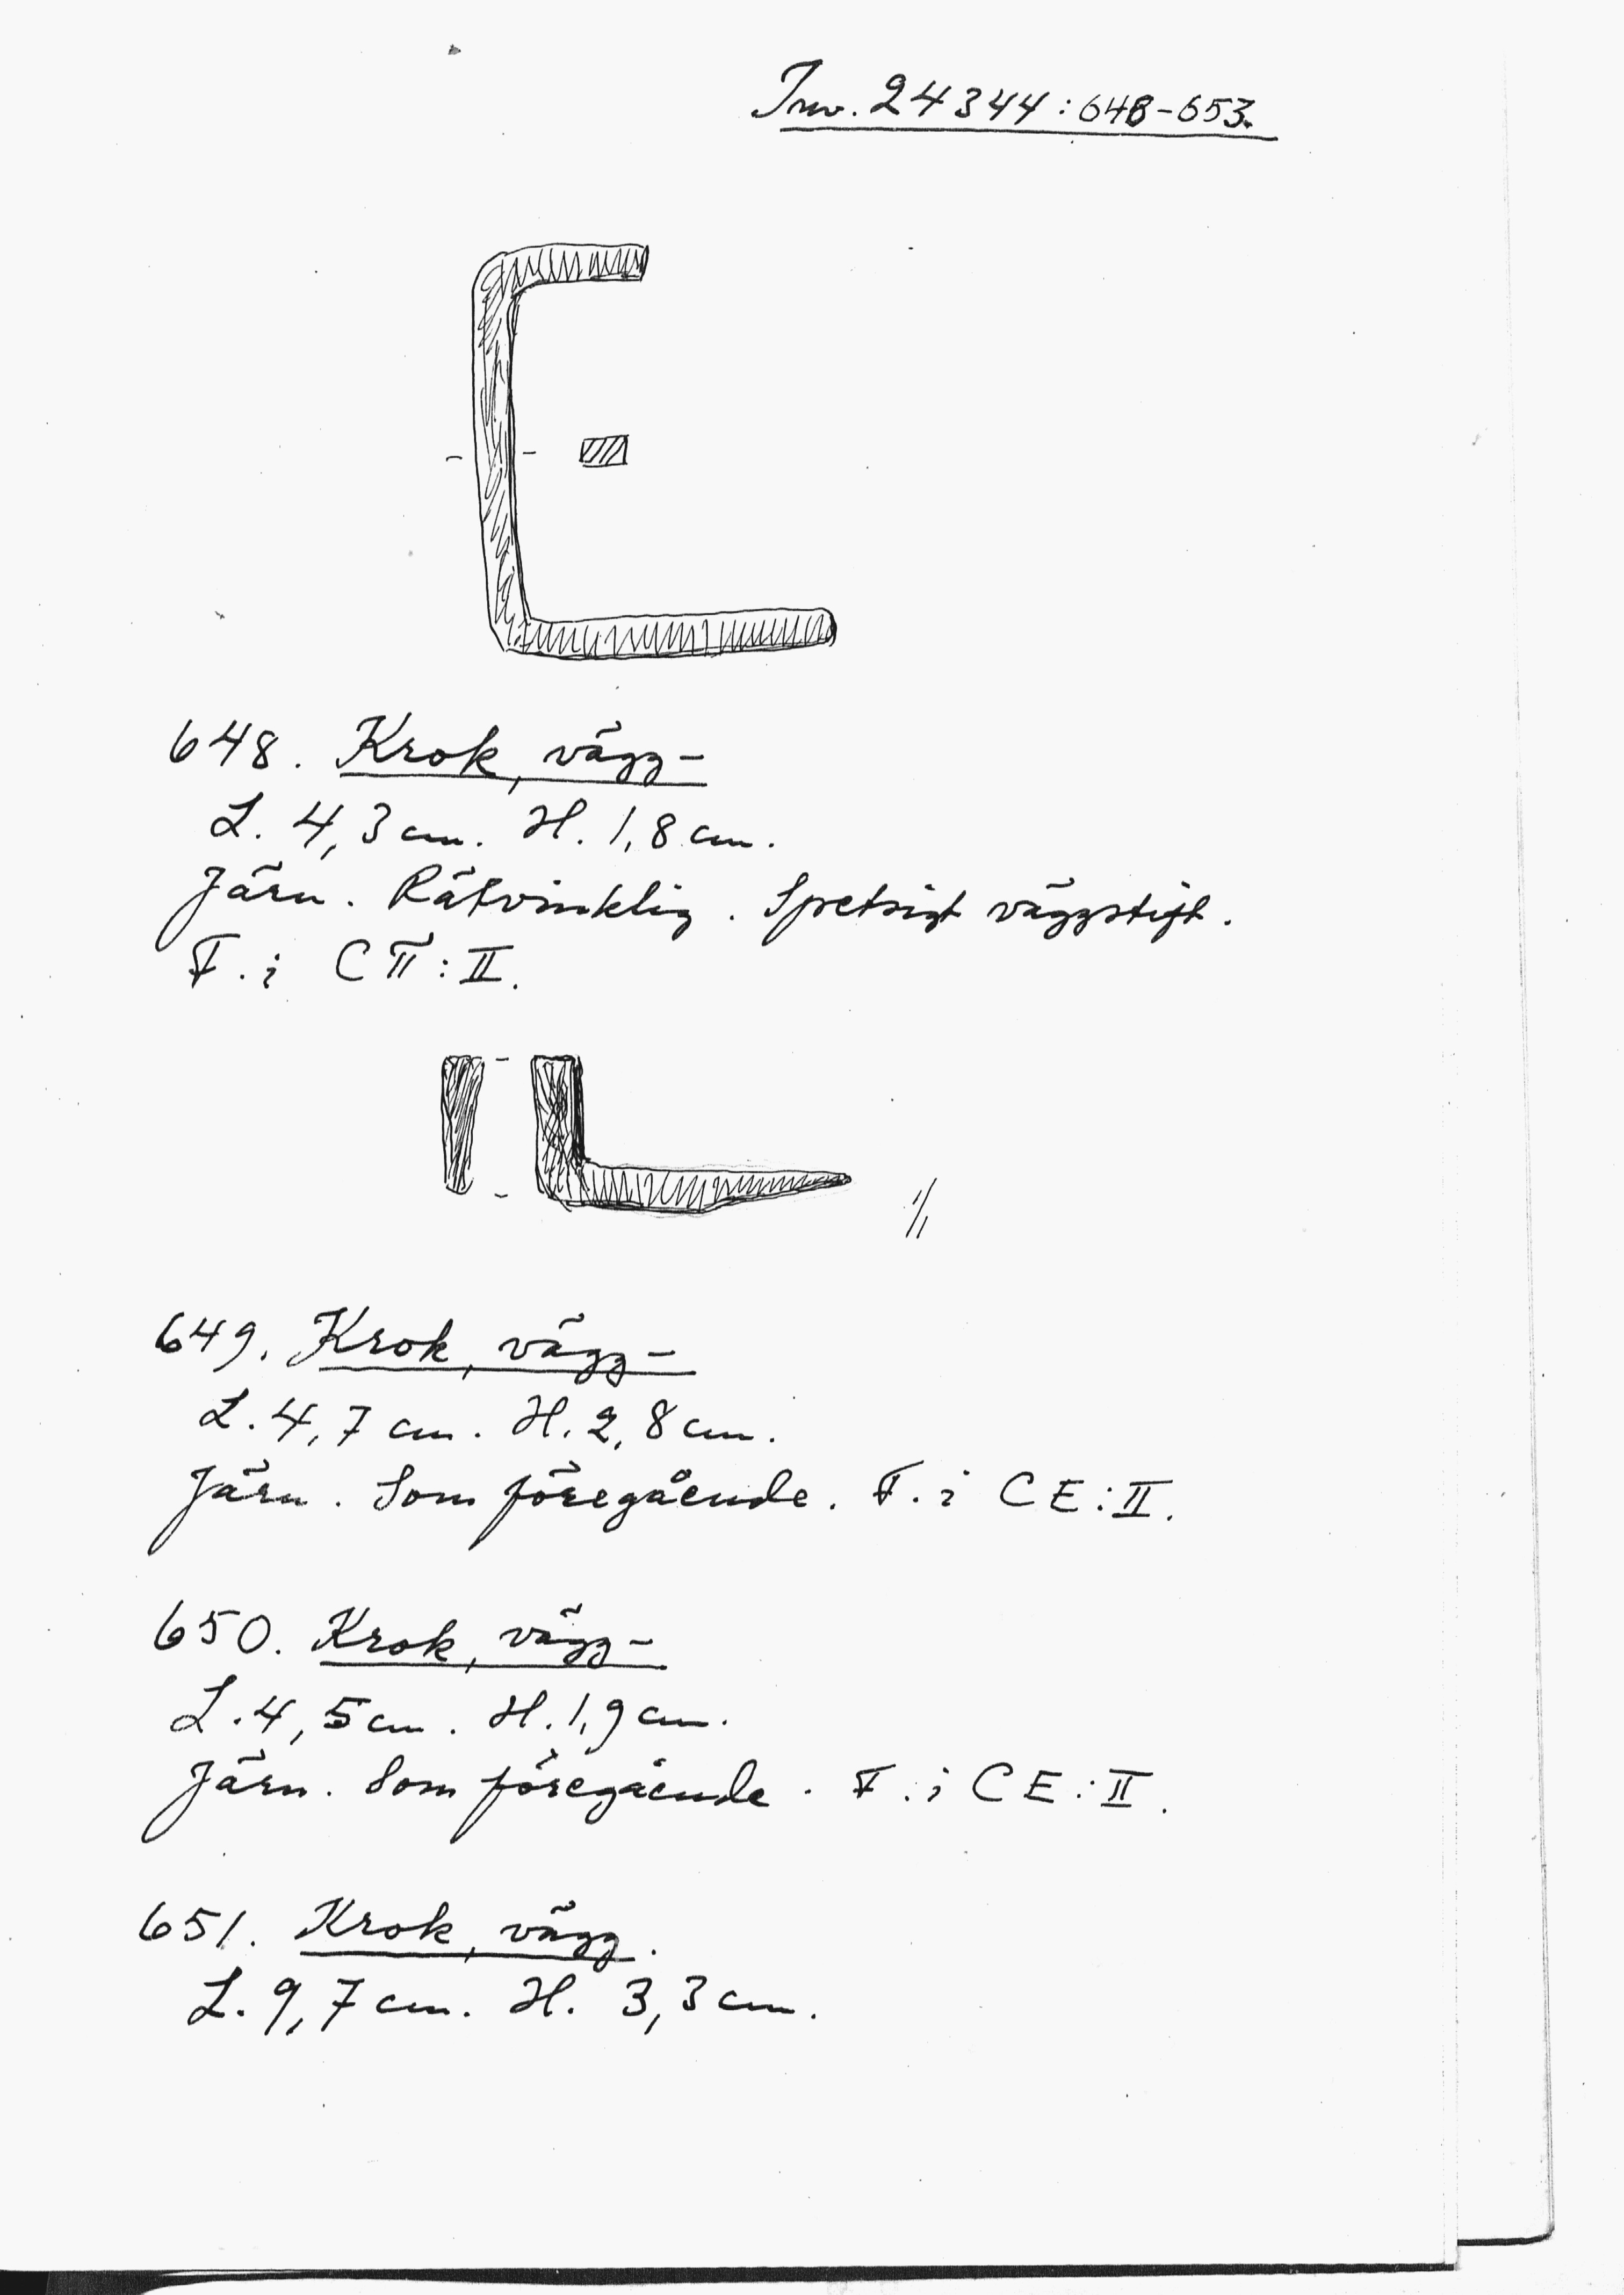 Inv. 24344:648-653.
648. Krok, vägg-
L. 4,3 cm. H. 1,8 cm.
Järn. Rätvinklig. Spetsigt väggstift.
F. i CÄ:II.
1/1
649. Krok, vägg-
L. 4,7 cm. H. 2,8 cm.
Järn. Som föregående. F. i CE:II.
650. Krok, vägg-
L. 4,5 cm. H. 1,9 cm.
Järn. Som föregående. F. i CE:II.
651. Krok, vägg.
L. 9,7 cm. H. 3,3 cm.